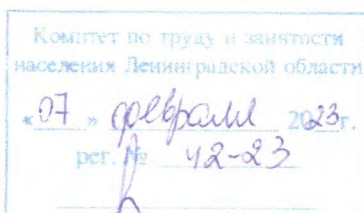 Комитет по труду и занятости
населения Ленинградской области
«07» февраля 2023г.
рег. № 42-23